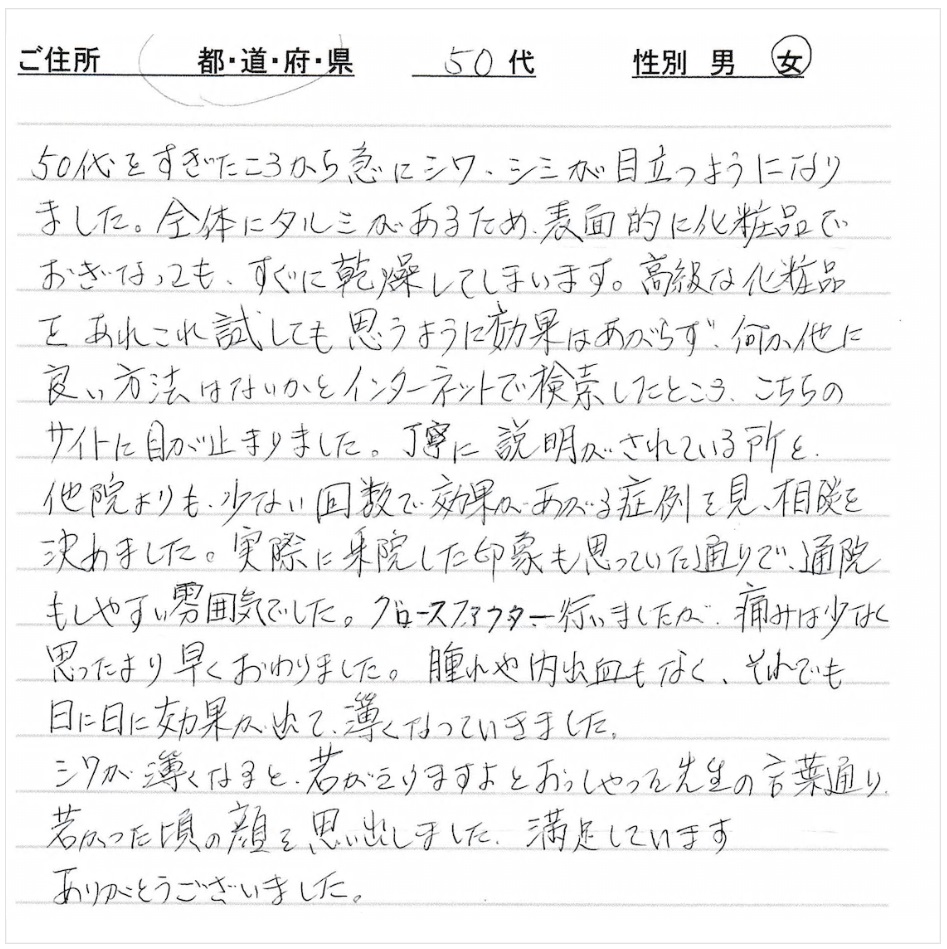 ご住所 都・道・府・県 50代 性別 男 女
50代をすぎたころから急にシワ、シミが目立つようになり
ました。全体にタルミがあるため、表面的に化粧品で
おぎなっても、すぐに乾燥してしまいます。高級な化粧品
をあれこれ試しても思うように効果はあがらず、何か他に
良い方法はないかとインターネットで検索したところ、こちらの
サイトに目が止まりました。丁寧に説明がされている所と、
他院よりも、少ない回数で効果があがる症例を見、相談を
決めました。実際に来院した印象も思っていた通りで、通院
もしやすい雰囲気でした。グロースファクター行いましたが、痛みは少なく
思ったより早くおわりました。腫れや内出血もなく、それでも
日に日に効果が出て、薄くなっていきました。
シワが薄くなると、若がえりますよとおっしゃった先生の言葉通り、
若かった頃の顔を思い出しました。満足しています
ありがとうございました。